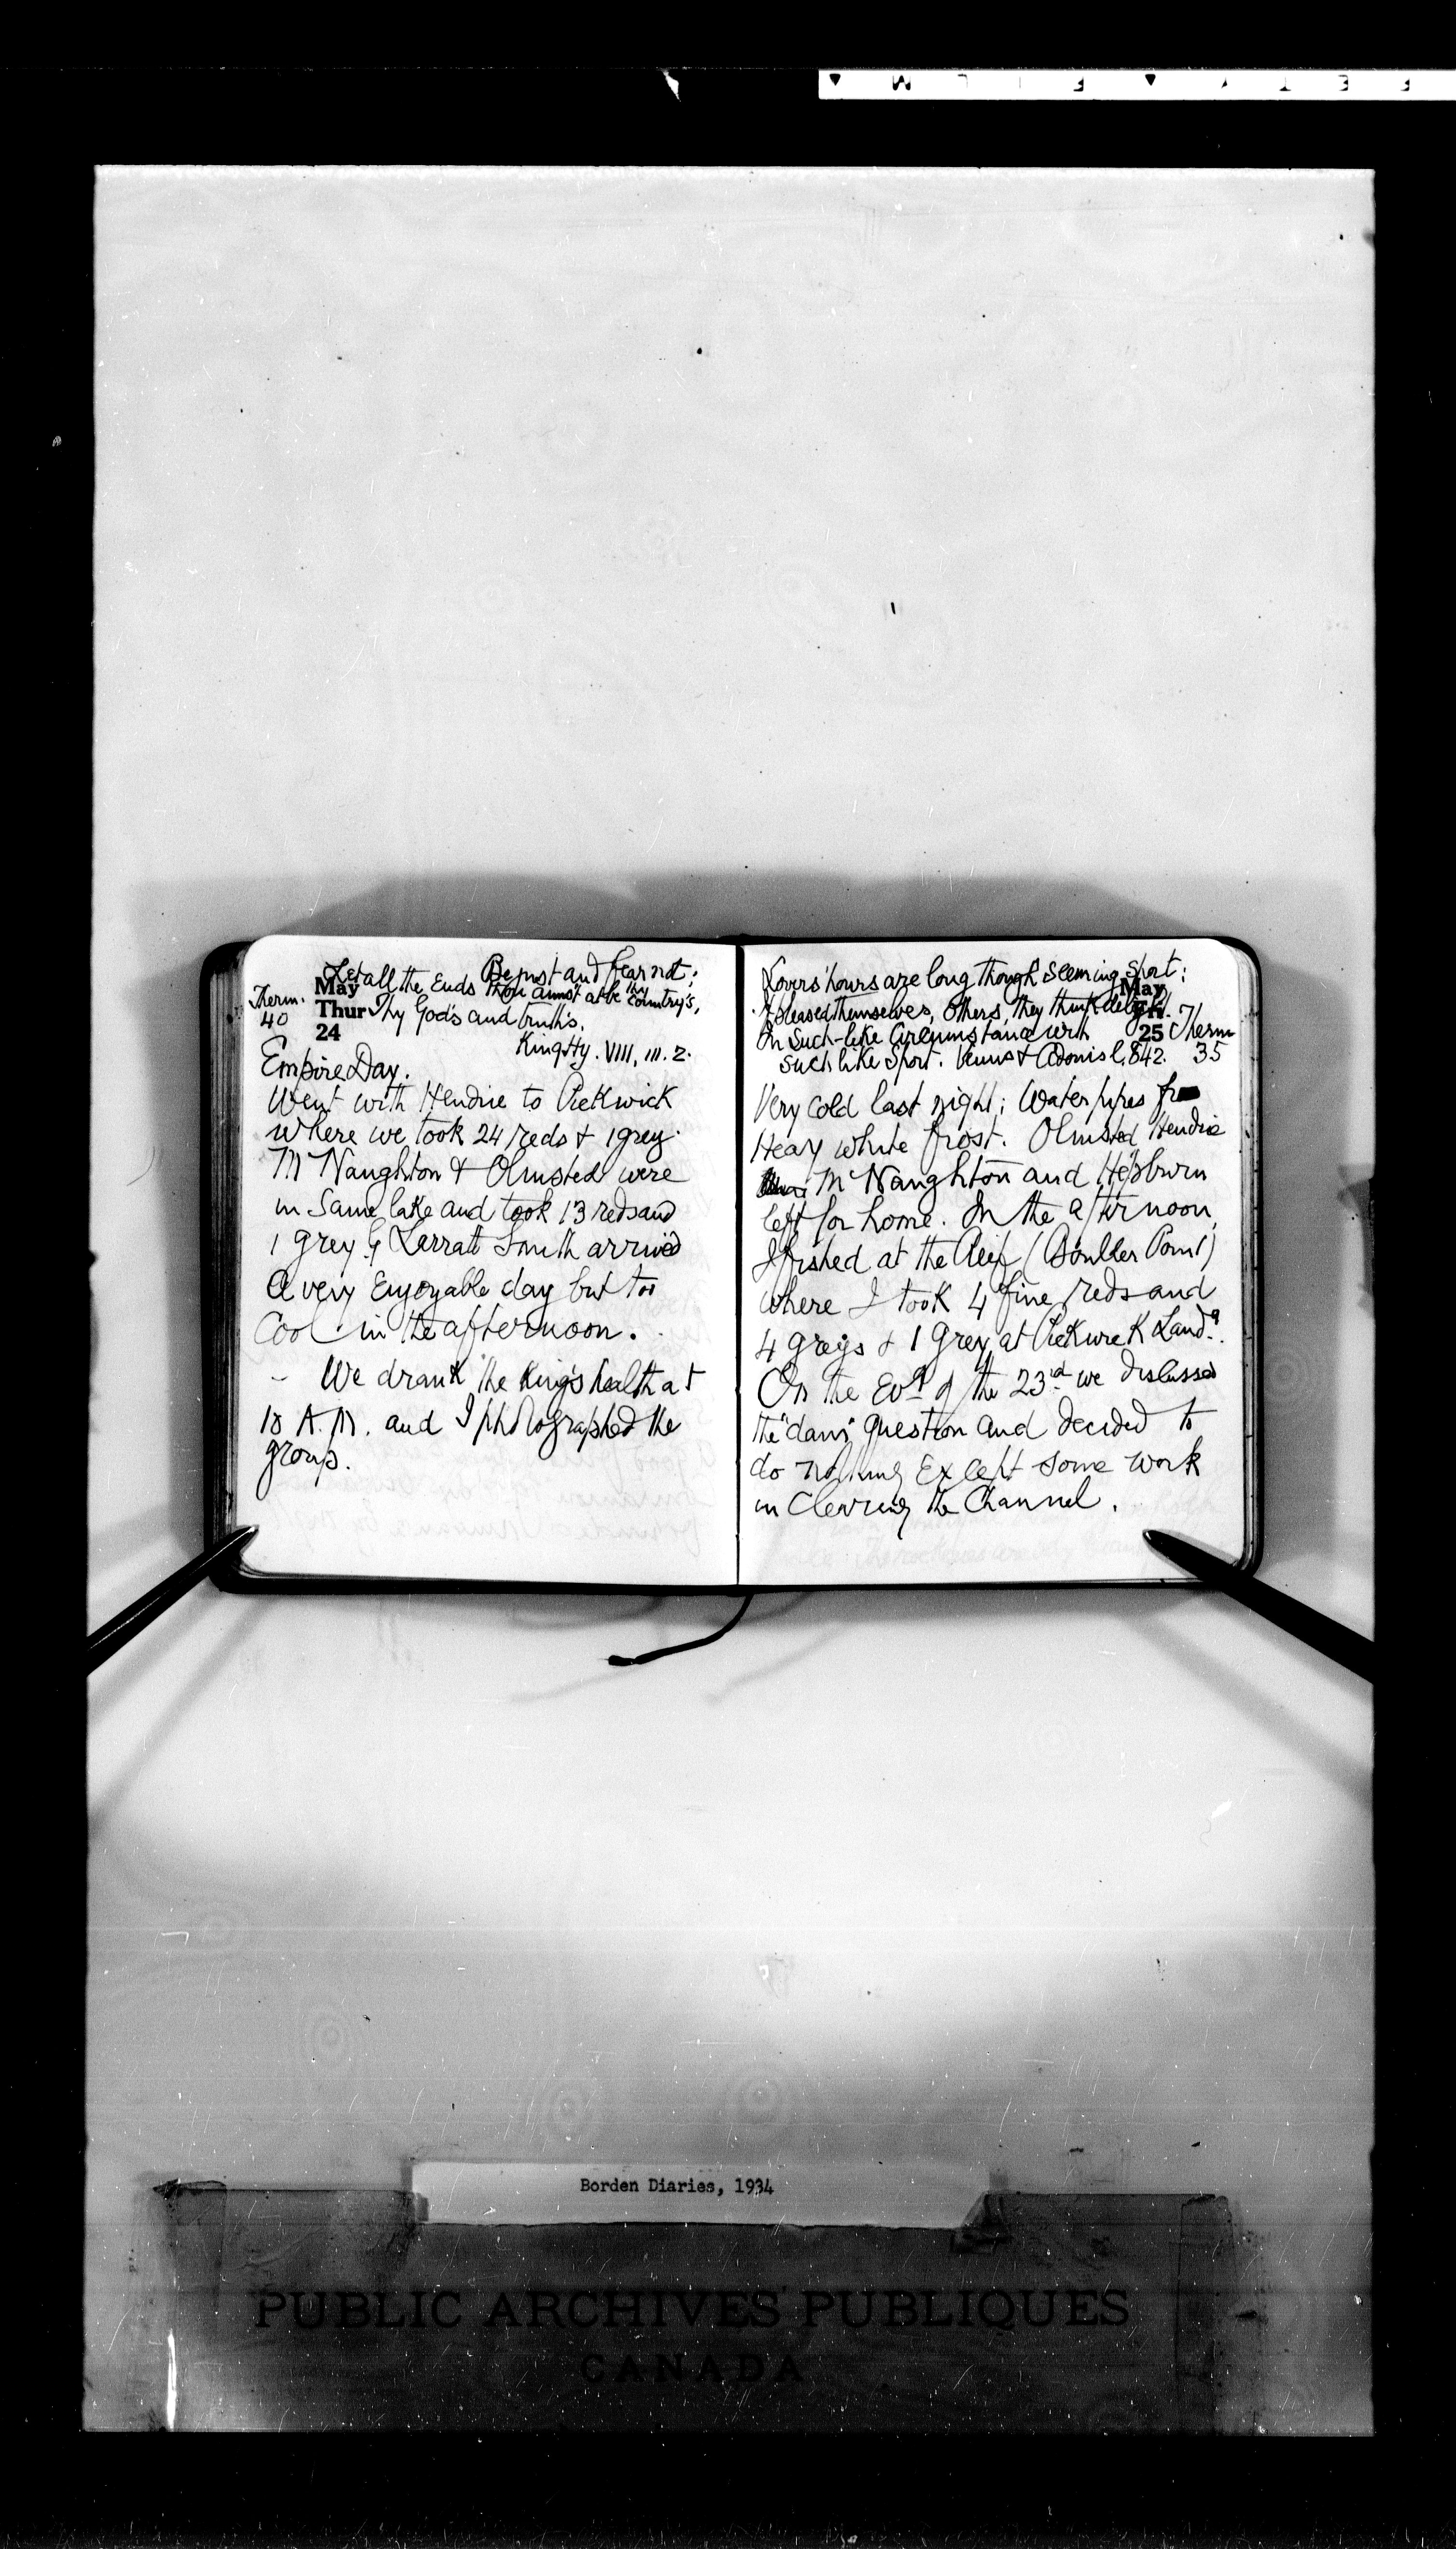 Be just and fear not;
Let all the Ends thou aimst at be thy Country's,
Thy God's and truth's.
King Hy. VIII, III. 2.
Therm.
40
May
Thur
24
Empire Day.
Went with Hendrie to Pickwick
where we took 24 reds & 1 grey.
McNaughton & Olmsted were
in Same lake and took 13 reds and
1 grey. G Larratt Smith arrived
A very Enjoyable day but too
Cool in the afternoon.
- We drank the King's health at
10 A.M. and I photographed the
group.
Lovers' hours are long though Seeming Short:
If pleased themselves, Others, they think delight
In Such-like Circumstance with
Such like Sport. Venus & Adonis l. 842.
May
Fri
25
Therm
35
Very cold last night; Water pipes
Heavy white frost. Olmsted Hendrie
McNaughton and Hepburn
left for home. In the afternoon,
I fished at the Reef (Boulder Point)
where I took 4 fine reds and
4 greys & 1 Grey at Pickwick Landg.
On the Evg of the 23rd we discussed
the "dam" question and decided to
do nothing Except some work
in Clearing the Channel.
Borden Diaries, 1934
PUBLIC ARCHIVES PUBLIQUES
CANADA